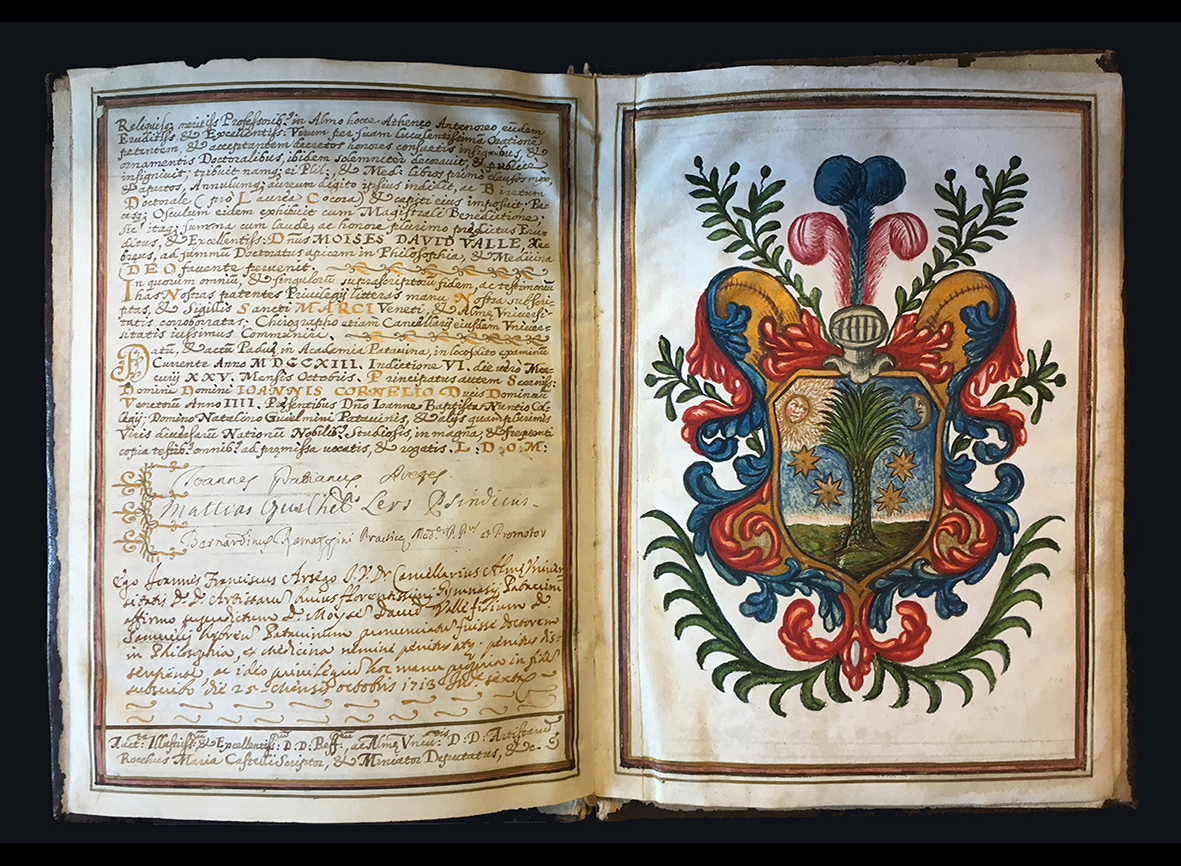 Reliquisq; meritiss Professorib.⁹ in Almo hocce Atheneo Antenoreo, eũdem
Eruditiss, & Excellentiss: Virum per suam luculentissimã Orationē
petentem, & acceptantem decretos honores consuetis insignibus, &
ornamentis Doctoralibus, ibidem solemniter decoravit, & publicè
insignivit; tribuit namq; ei Plii, & Med: libros primo clausos mox,
& apertos, Annulumq; aureum digito ipsius indidit, ac Biretum
Doctorale (pro Laurea Cocora) & capiti eius imposuit. Pa-
cisq; Osculum eidem exhibuit cum Magistrali Benedictione.
Sic itaq; summa cum laude, ac honore plurimo prędictus Eru-
ditus, & Excellentiss: Dñus MOISES DAVID VALLE, Hę-
bręus, ad summũ Doctoratus apicem in Philosophia, & Medicina
(DEO favente pervenit.
In quorum omniũ, & singulorũ suprascriptorũ fidem, ac testimoniũ
has Nostras patentes Privilegij litteras manu Nostra subscri-
ptas, & Sigillis Sancti MARCI Veneti, & Almę Universi-
tatis corroboratas, Chirographo etiam Cancellarij eiusdem Vniver-
sitatis iussimus Communiri.
Datũ, & actũ Paduę, in Academia Patavina, in loco solito examinũ
Currente Anno MDCCXIII. Indictione VI. die verò Mer-
curij XXV. Mensis Octobris. Principatus autem Sereniss:
Domini Domini IOANNIS CORNELIO Ducis Dominorũ
Venetorũ Anno IIII. Pręsentibus Dño Ioanne Baptista Nuntio Col-
legij, Domino Natalino Guielmini Prevenis, & alijs quamplurimis
Viris diversarũ Nationũ Nobilib.⁹ Studiosis, in magna, & frequenti
copia testib.⁹ omnib.⁹ ad pręmissa vocatis, & rogatis. L: D: O: M:
Ioannes Fabianus
Mattias Guilhel Psindicus
Bernardinus Ramazzini Practicę et Promotor
Ego Ioannis Franciscus Arsego Dr Cancellarius Almę Vniver-
sitatis D. D. Artistarũ huius florentissimi Gymnasij Patavini
affirmo supradictum D. Moysē David Valle filium D.
Samuelis hębreũ Patavinum pronunciatũ fuisse doctorem
in Philosophia, et Medicina nemine penitus dis-
sentiente, ac ideo privilegium hoc manu propria in fidē
subscribo die 25 mensis octobris 1713 Indē sextę
Illustriss: & Excellentiss: D. D. ac Almę Vniv: D. D. Artistarũ
Rocchus Maria Castelli Scriptor, & Miniator Deputatus, &c.